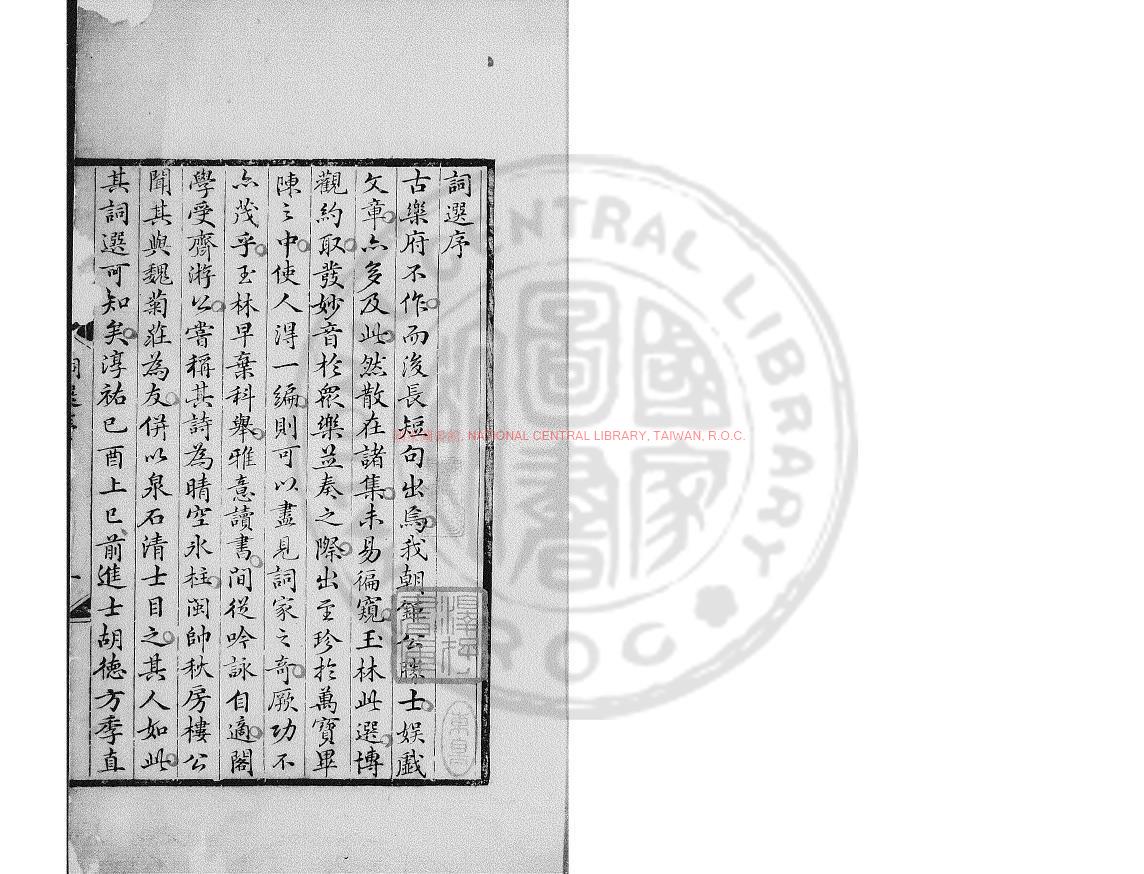 詞選序
古樂府不作而後長短句出焉我朝鉅公勝士娛戲
文章亦多及此然散在諸集未易徧窺玉林此選博
觀約取發妙音於眾樂並奏之際出至珍於萬寶畢
陳之中使人得一編則可以盡見詞家之奇厥功不
亦茂乎玉林早棄科舉雅意讀書間從吟詠自適閣
學受齋游公嘗稱其詩為晴空氷柱閩帥秋房樓公
聞其與魏菊莊為友併以泉石清士目之其人如此
其詞選可知矣淳祐己酉上巳前進士胡德方季直
詞選序
一
NATIONAL CENTRAL LIBRARY, TAIWAN, R.O.C.
國家圖書館
NATIONAL CENTRAL LIBRARY
R.O.C